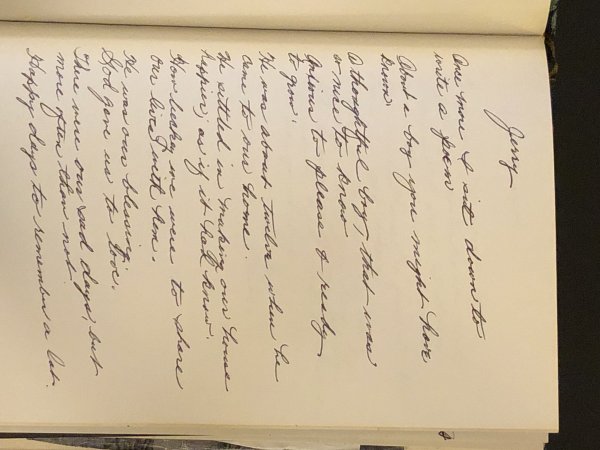 Jerry
Once more I sit down to
write a poem
About a boy you might have
known.
A thoughtful boy, that was
so nice to know
Anxious to please & ready
to grow.
He was about twelve when he
came to our home.
He settled in making our house
happier, as if it had known.
How luckey we were to share
our lives with him.
He was our blessing,
God gave us to love.
There were our sad days, but
more often than not.
Happy days to remember a lot.